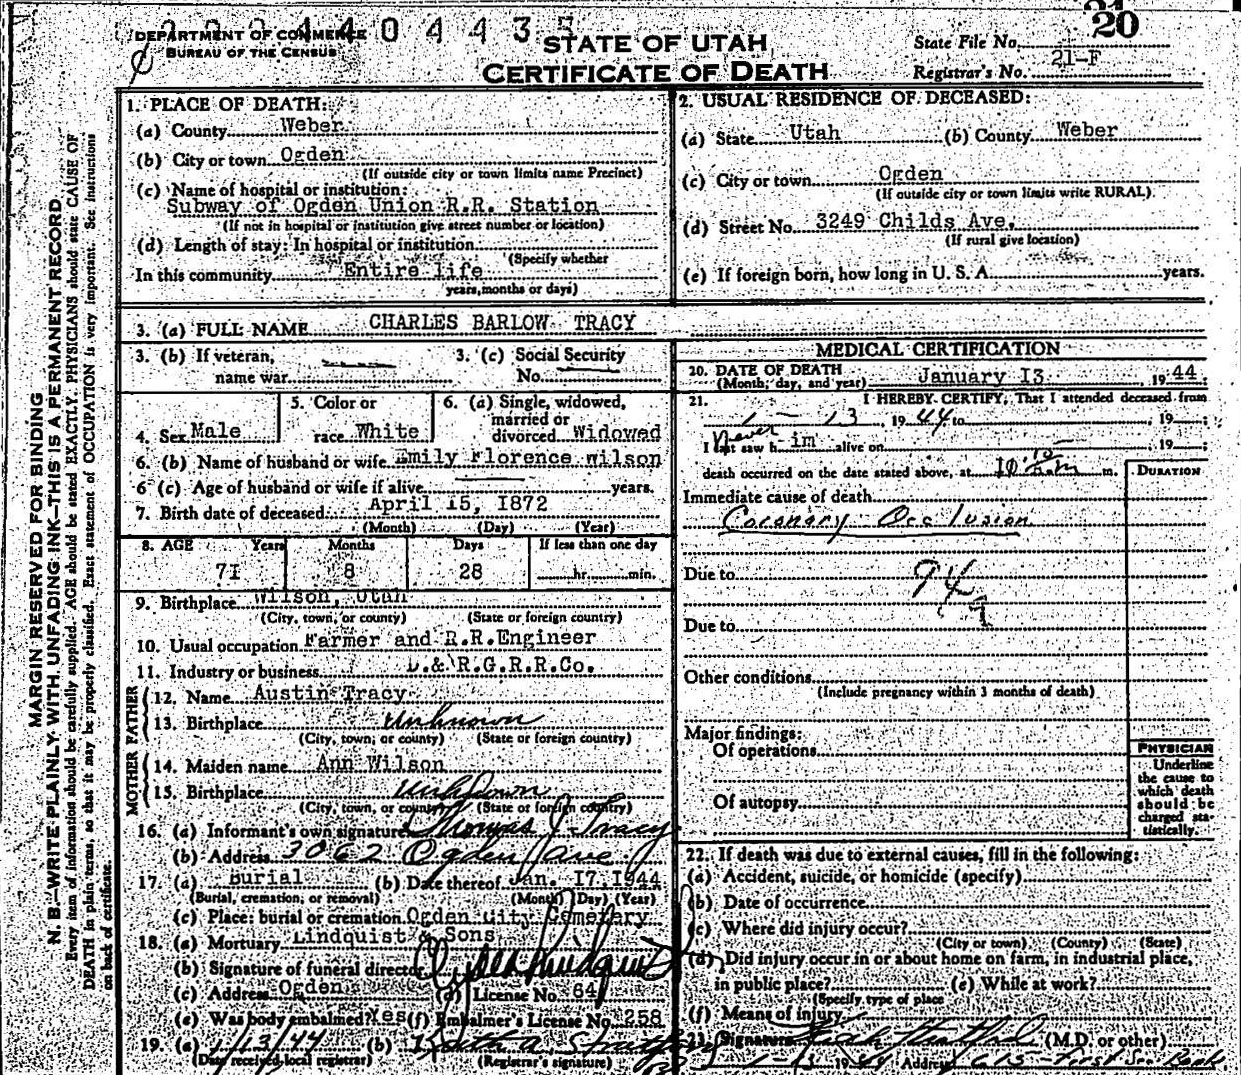 21
20
2024404435
DEPARTMENT OF COMMERCE
BUREAU OF THE CENSUS
STATE OF UTAH
CERTIFICATE OF DEATH
State File No.
Registrar's No. 21-F
MARGIN RESERVED FOR BINDING
N. B.—WRITE PLAINLY WITH UNFADING INK—THIS IS A PERMANENT RECORD
Every item of information should be carefully supplied. AGE should be stated EXACTLY. PHYSICIANS should state CAUSE OF
DEATH in plain terms, so that it may be properly classified. Exact statement of OCCUPATION is very important. See instructions
on back of certificate.
1. PLACE OF DEATH:
(a) County Weber
(b) City or town Ogden
(If outside city or town limits name Precinct)
(c) Name of hospital or institution:
Subway of Ogden Union R.R. Station
(If not in hospital or institution give street number or location)
(d) Length of stay: In hospital or institution
(Specify whether
In this community Entire life
years, months or days)
2. USUAL RESIDENCE OF DECEASED:
(a) State Utah (b) County Weber
(c) City or town Ogden
(If outside city or town limits write RURAL)
(d) Street No. 3249 Childs Ave.
(If rural give location)
(e) If foreign born, how long in U. S. A. years.
3. (a) FULL NAME CHARLES BARLOW TRACY
3. (b) If veteran,
name war
3. (c) Social Security
No.
4. Sex Male
5. Color or
race White
6. (a) Single, widowed,
married or
divorced Widowed
6. (b) Name of husband or wife Emily Florence Wilson
6 (c) Age of husband or wife if alive years.
7. Birth date of deceased April 15, 1872
(Month) (Day) (Year)
8. AGE Years Months Days If less than one day
71 8 28 hr. min.
9. Birthplace Wilson, Utah
(City, town, or county) (State or foreign country)
10. Usual occupation Farmer and R.R.Engineer
11. Industry or business D.& R.G.R.R.Co.
FATHER
12. Name Austin Tracy
13. Birthplace Unknown
(City, town, or county) (State or foreign country)
MOTHER
14. Maiden name Ann Wilson
15. Birthplace Unknown
(City, town, or county) (State or foreign country)
16. (a) Informant's own signature Thomas J. Tracy
(b) Address 3062 Ogden Ave
17. (a) Burial (b) Date thereof Jan. 17, 1944
(Burial, cremation, or removal) (Month) (Day) (Year)
(c) Place: burial or cremation Ogden City Cemetery
18. (a) Mortuary Lindquist & Sons
(b) Signature of funeral director
(c) Address Ogden (d) License No. 64
(e) Was body embalmed? Yes (f) Embalmer's License No. 258
19. (a) 1/13/44 (b)
(Date received local registrar) (Registrar's signature)
MEDICAL CERTIFICATION
20. DATE OF DEATH
(Month, day, and year) January 13, 1944;
21. I HEREBY CERTIFY, That I attended deceased from
1 - 13, 1944 to , 19 ;
I Never last saw h im alive on , 19 ;
death occurred on the date stated above, at 10 m.
DURATION
Immediate cause of death
Coronary Occlusion
Due to 94
a
Due to
Other conditions
(Include pregnancy within 3 months of death)
Major findings:
Of operations
Of autopsy
PHYSICIAN
Underline
the cause to
which death
should be
charged sta-
tistically.
22. If death was due to external causes, fill in the following:
(a) Accident, suicide, or homicide (specify)
(b) Date of occurrence
(c) Where did injury occur?
(City or town) (County) (State)
(d) Did injury occur in or about home on farm, in industrial place,
in public place? (e) While at work?
(Specify type of place
(f) Means of injury
23. Signature (M.D. or other)
1-13 1944 Address 615 First Sec Bank